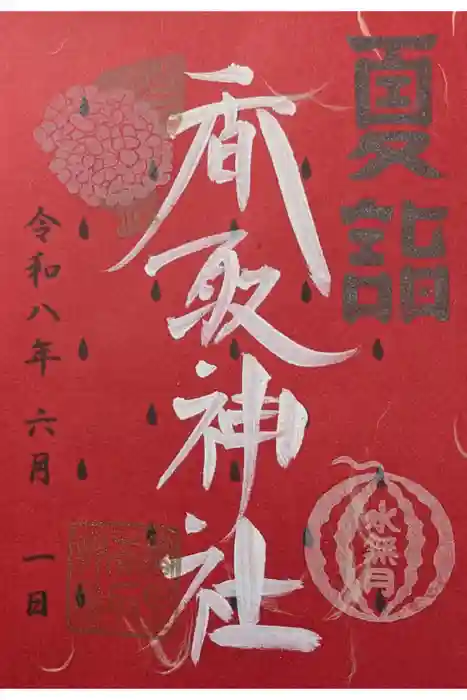 夏詣
香取神社
水無月
令和八年 六月 一日